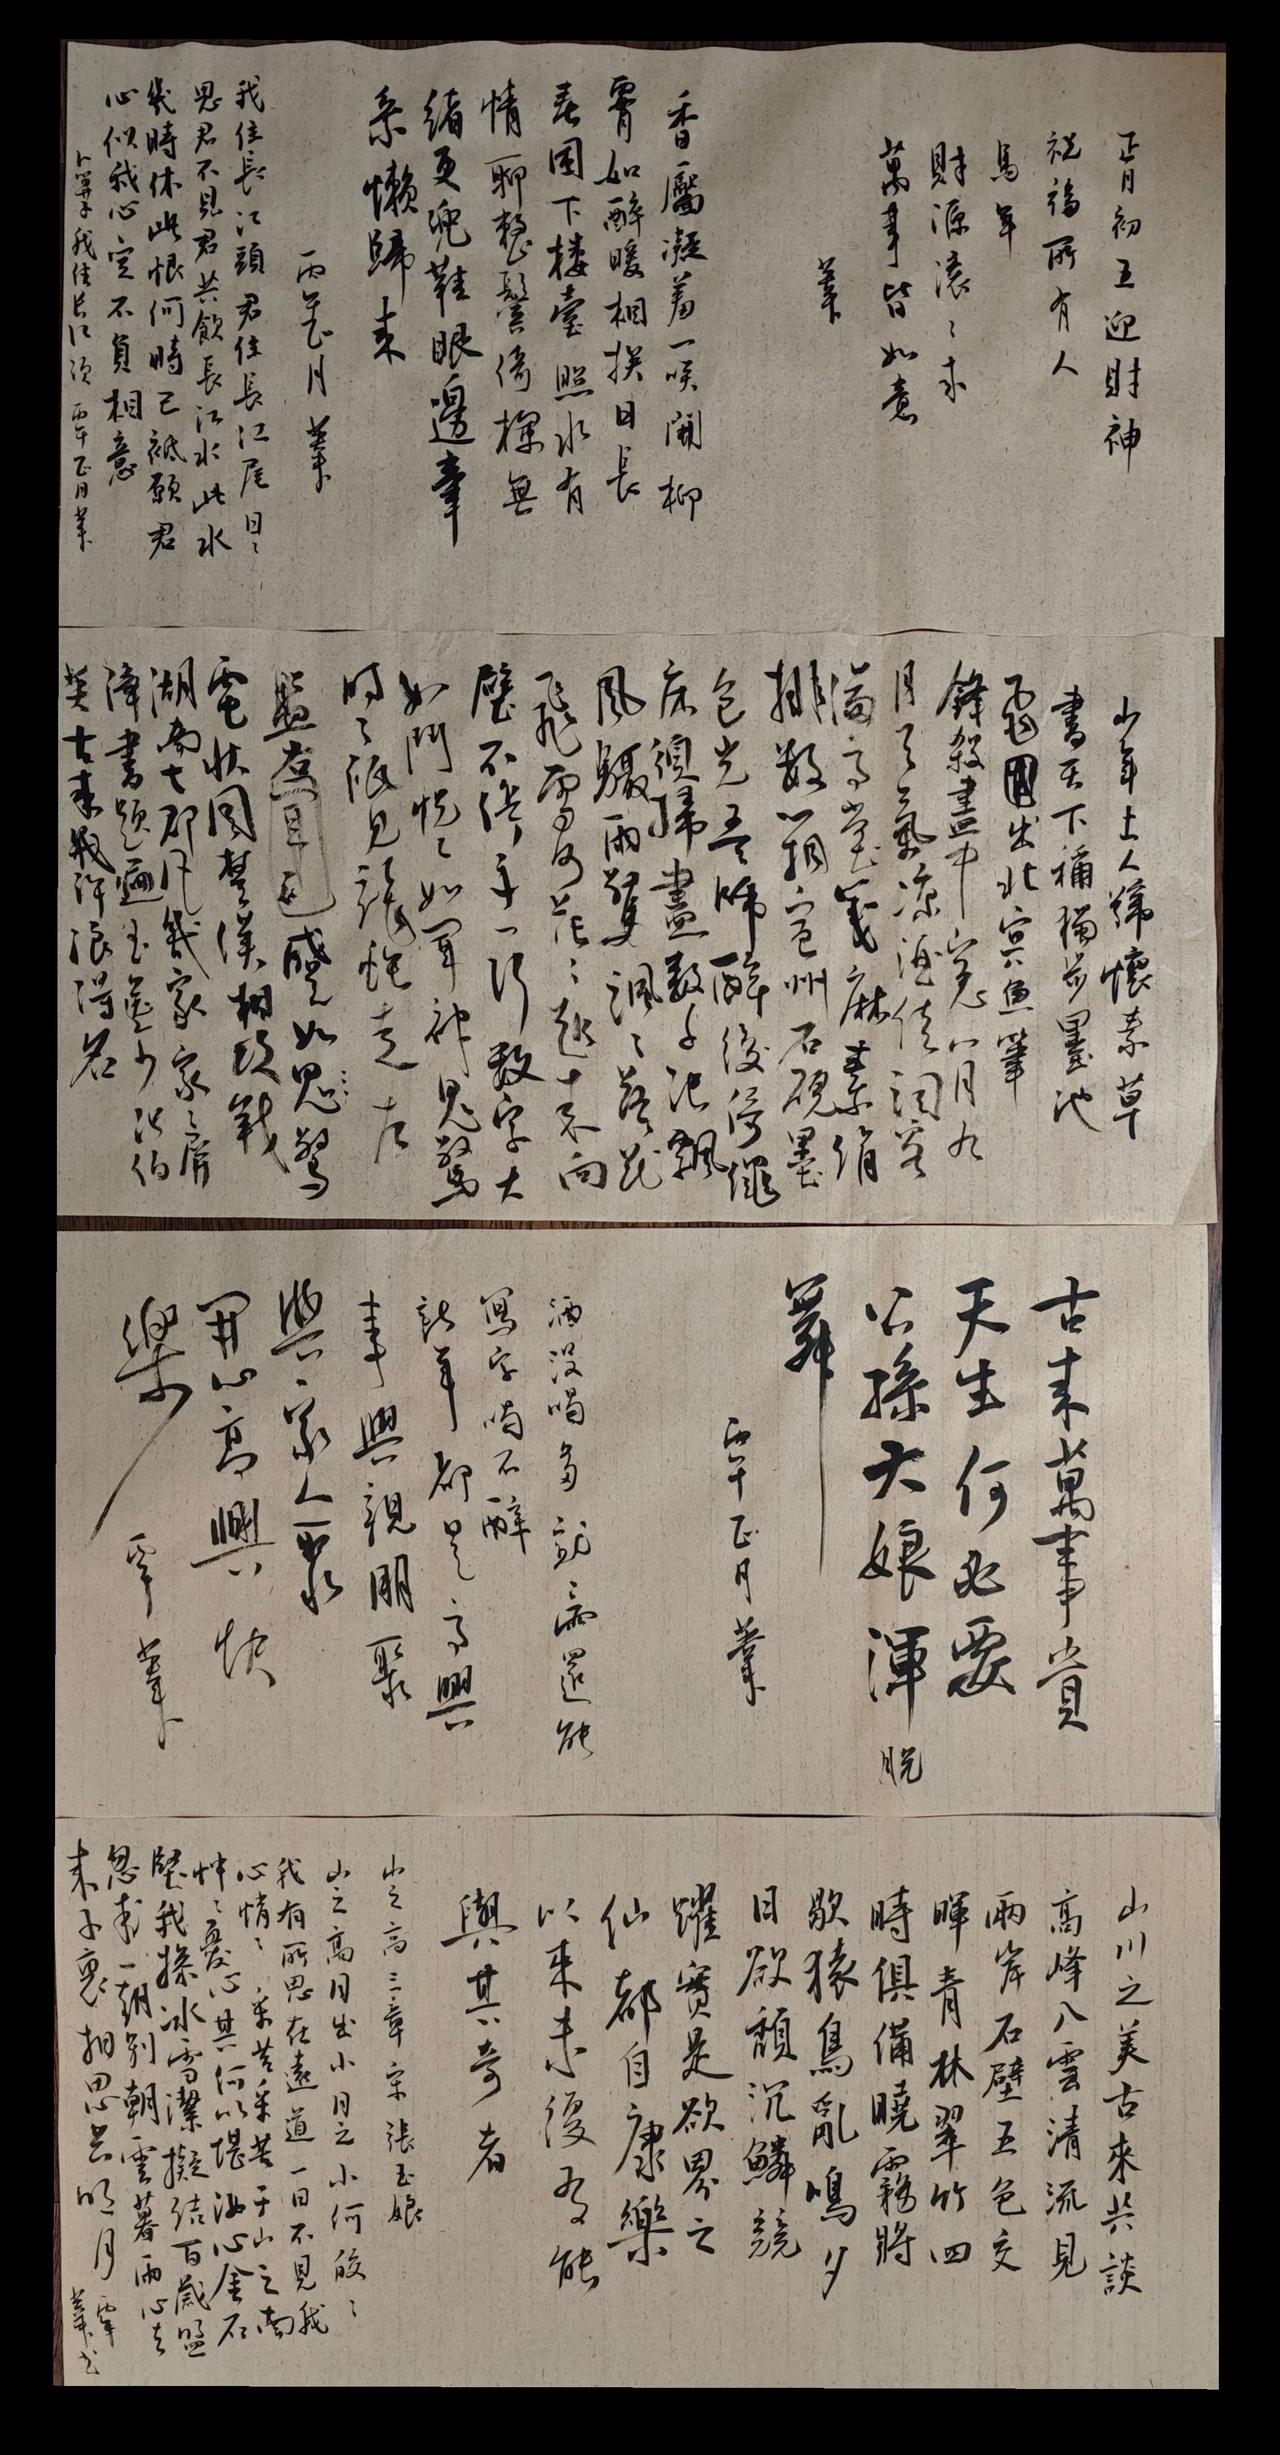 正月初五迎財神
祝福所有人
馬年
財源滾〻來
萬事皆如意
香靨凝羞一咲開柳
霄如醉暖相挨日長
春困下楼臺照水有
情聊整鬢倚欄無
绪更兜鞋眼邊牽
系懶歸来
我住長江頭君住長江尾日〻
思君不見君共飲長江水此水
幾時休此恨何時已祗願君
心似我心定不負相意
少年上人稱懷素草
書天下稱獨步墨池
飛出北冥魚筆
鋒殺盡中 兔八月九
月天氣凉酒徒詞客
滿高堂箋麻素绢
排數箱宣州石硯墨
色光吾師醉後倚繩
床須掃盡數千张飄
風驟雨驚颯〻落花
飛雪何茫〻起来向
壁不停手一行數字大
如斗恍〻如闻神鬼驚
時〻祗見龍蛇走左
盤 蹙如鬼驚
電状同楚漢相攻戰
湖南七郡凡幾家家〻屏
障書題遍王 少张伯
英古来幾許浪得名
古来萬事貴
天生何必要
公孫大娘渾脱
舞
丙午正月
酒没喝多 還能
寫字喝不醉
新年都是高興
事與親朋聚
與家人聚
開心高興快
樂
山川之美古來共談
高峰入雲清流見
兩岸石壁五色交
暉青林翠竹四
時俱備曉霧將
歇猿鳥亂鳴夕
日欲頹沉鱗競
躍實是欲界之
仙都自康樂
以来未復有能
與其奇者
山之高三章宋張玉娘
山之高月出小月之小何皎〻
我有所思在遠道一日不見我
心悄〻 采苦采苦于山之南
忡〻憂心其何以堪 汝心金石
堅我操冰雪潔擬结百歲盟
忽成一朝别朝雲暮雨心去
来千裏相思共明月